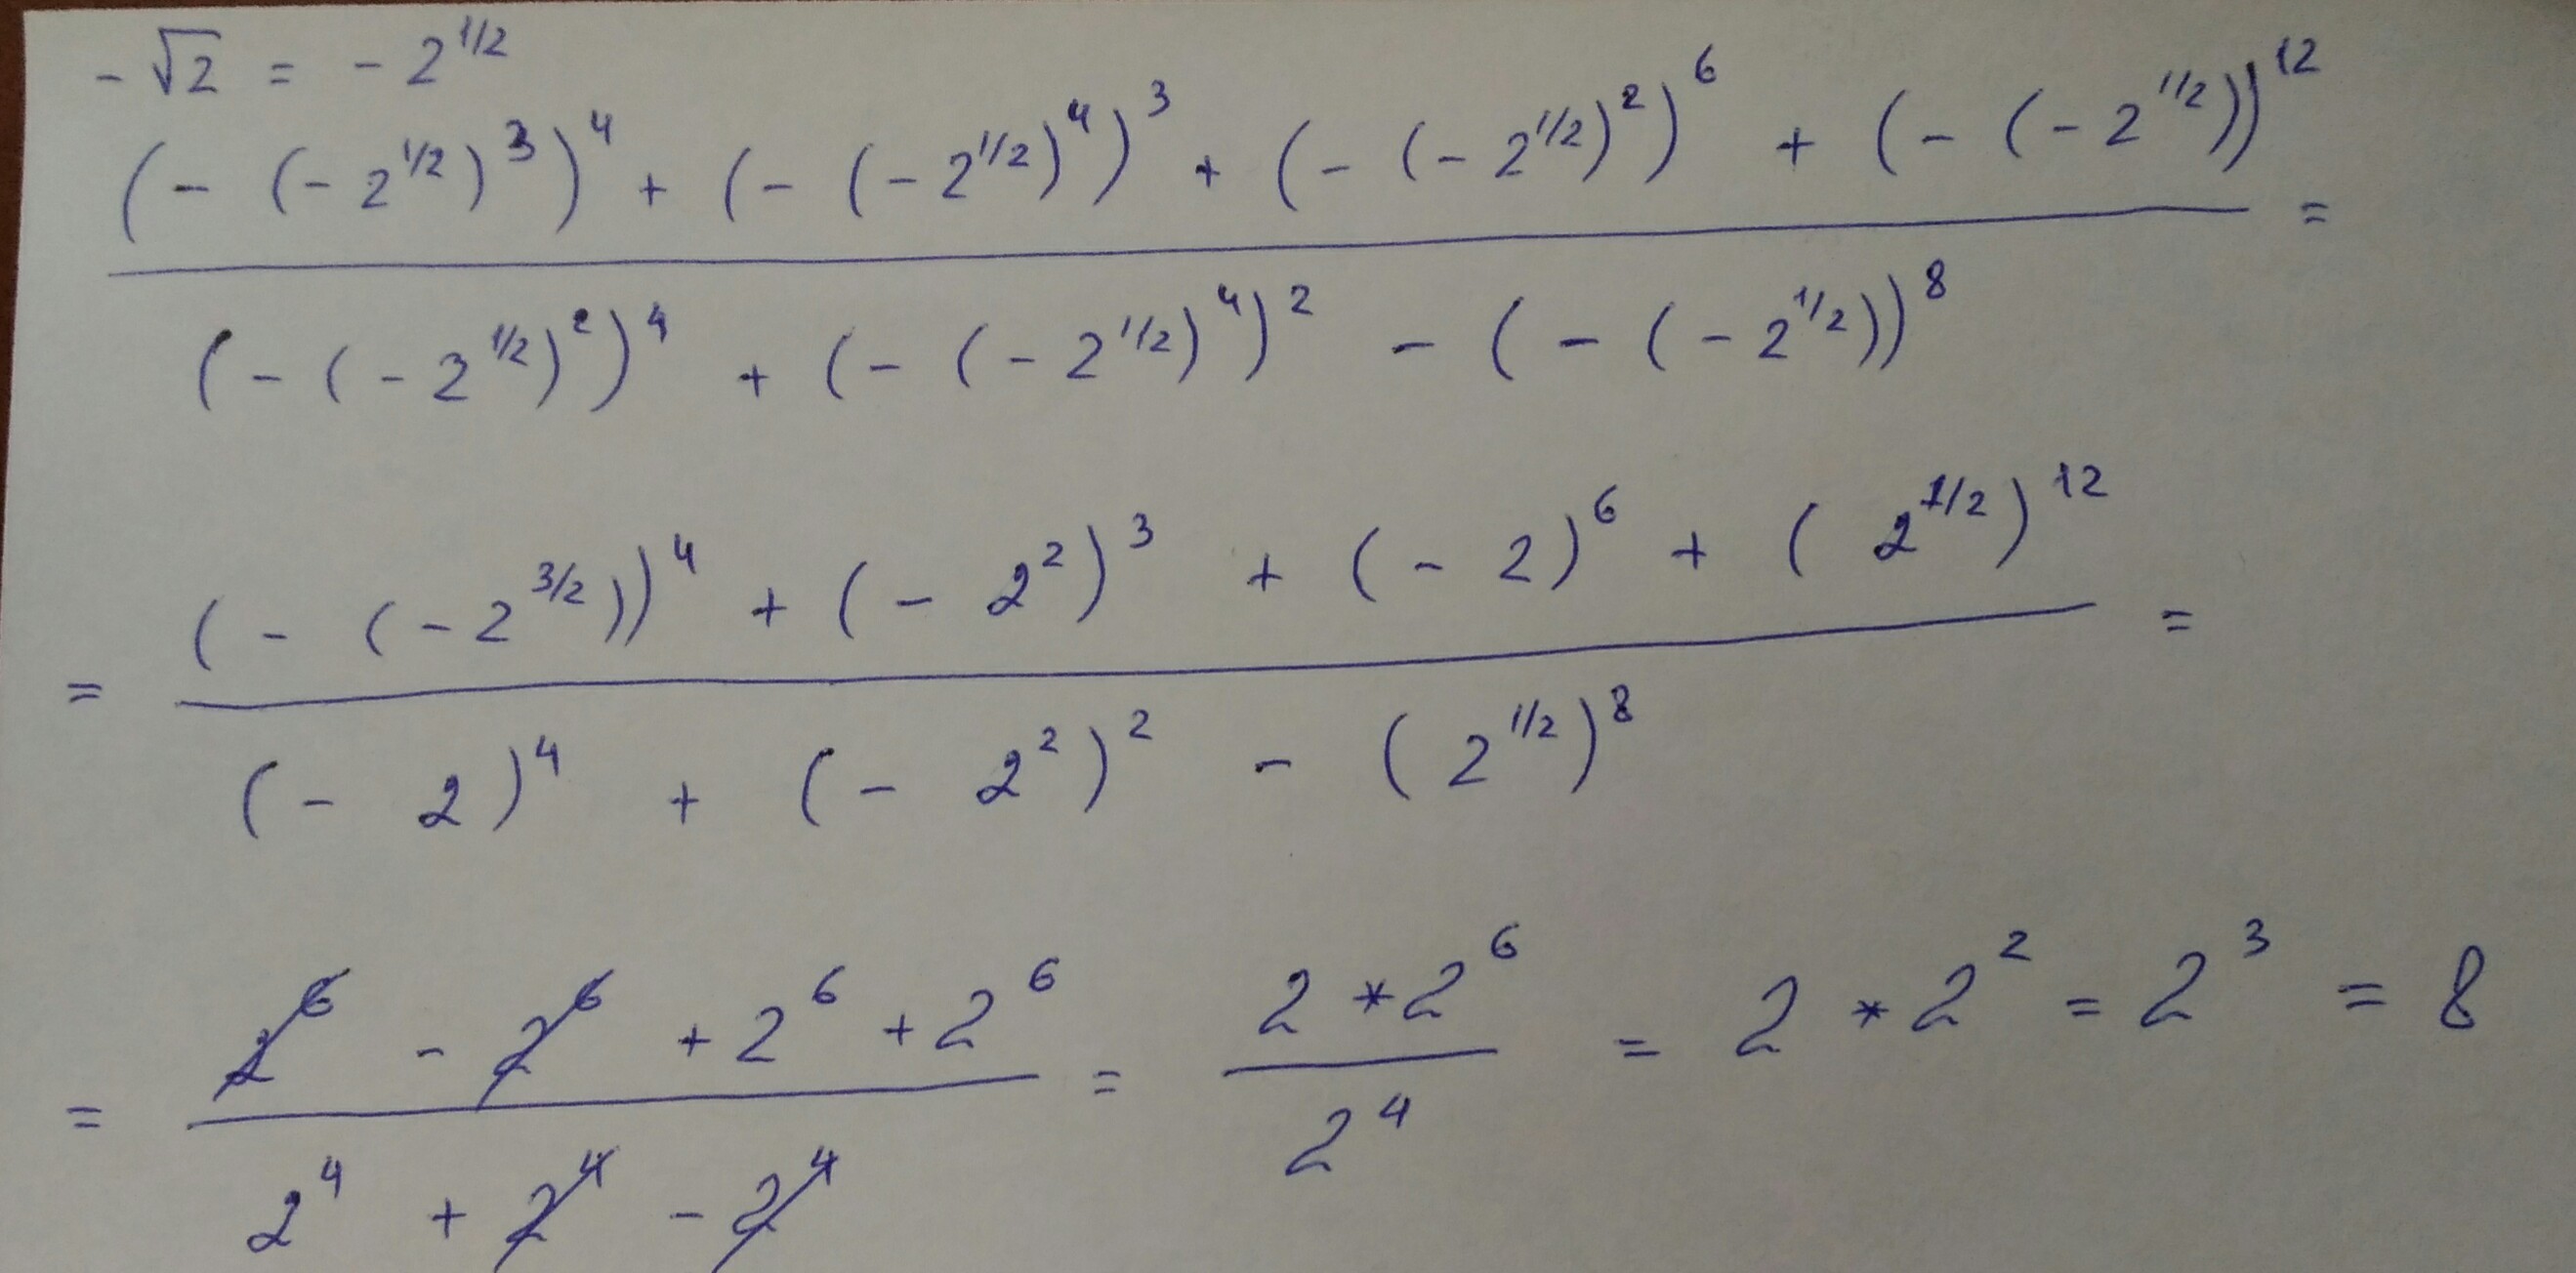 -√2 = -2^{1/2}
\frac{(-(-2^{1/2})^3)^4 + (-(-2^{1/2})^4)^3 + (-(-2^{1/2})^2)^6 + (-(-2^{1/2}))^{12}}{(-(-2^{1/2})^2)^4 + (-(-2^{1/2})^4)^2 - (-(-2^{1/2}))^8} =
= \frac{(-(-2^{3/2}))^4 + (-2^2)^3 + (-2)^6 + (2^{1/2})^{12}}{(-2)^4 + (-2^2)^2 - (2^{1/2})^8} =
= \frac{2^6 - 2^6 + 2^6 + 2^6}{2^4 + 2^4 - 2^4} = \frac{2*2^6}{2^4} = 2*2^2 = 2^3 = 8